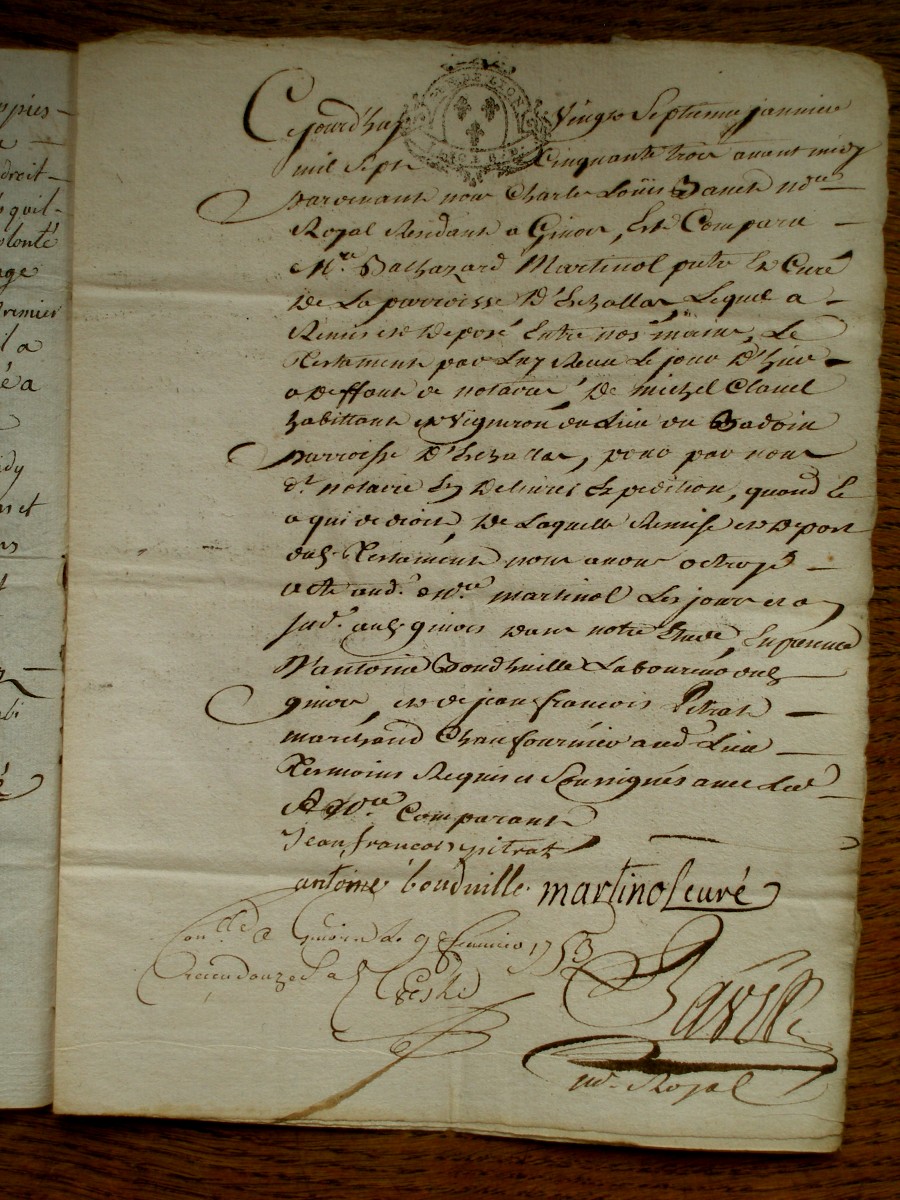 pies-
e -
droit-
quil-
olonté
age
premier
il a
é a
dy
et
GEN. DE LYON
Cejourd'huy Vingt Septieme janvier
mil Sept Cinquante trois avant midy
pardevant nous Charle Loüis no.re
Royal Residant a Givors, Est Comparu
M.re Balthazard Martinol pretre Et Curé
De La parroisse D'Echallas, Lequel a
Remis et Deposé Entre nos mains, Le
Testament par Luy Receu Le jour D'hier
a Deffaut de notaire, De michel Clavel
habittant et Vigneron du Lieu du Badoin
parroisse D'Echallas, pour par nous
d.t notaire En Delivrer Expedition, quand Et
a qui de droit, De Laquelle Remise et Depost
dud. Testament nous avons octroyé
acte aud. M.re martinol Les jour et a
sud. aud. givors dans notre Etude, En presence
D'antoine Boudville Laboureur dud.
givors, et de jean francois Pitrat
marchand Chaufournier aud. Lieu
Temoins Requis et Soussignés avec Led.
M.re Comparant
Jean francois pitrat
antoine boudville martinol curé
a Givors Le 9e fevrier 1753
Receu douze s.
no.re Royal